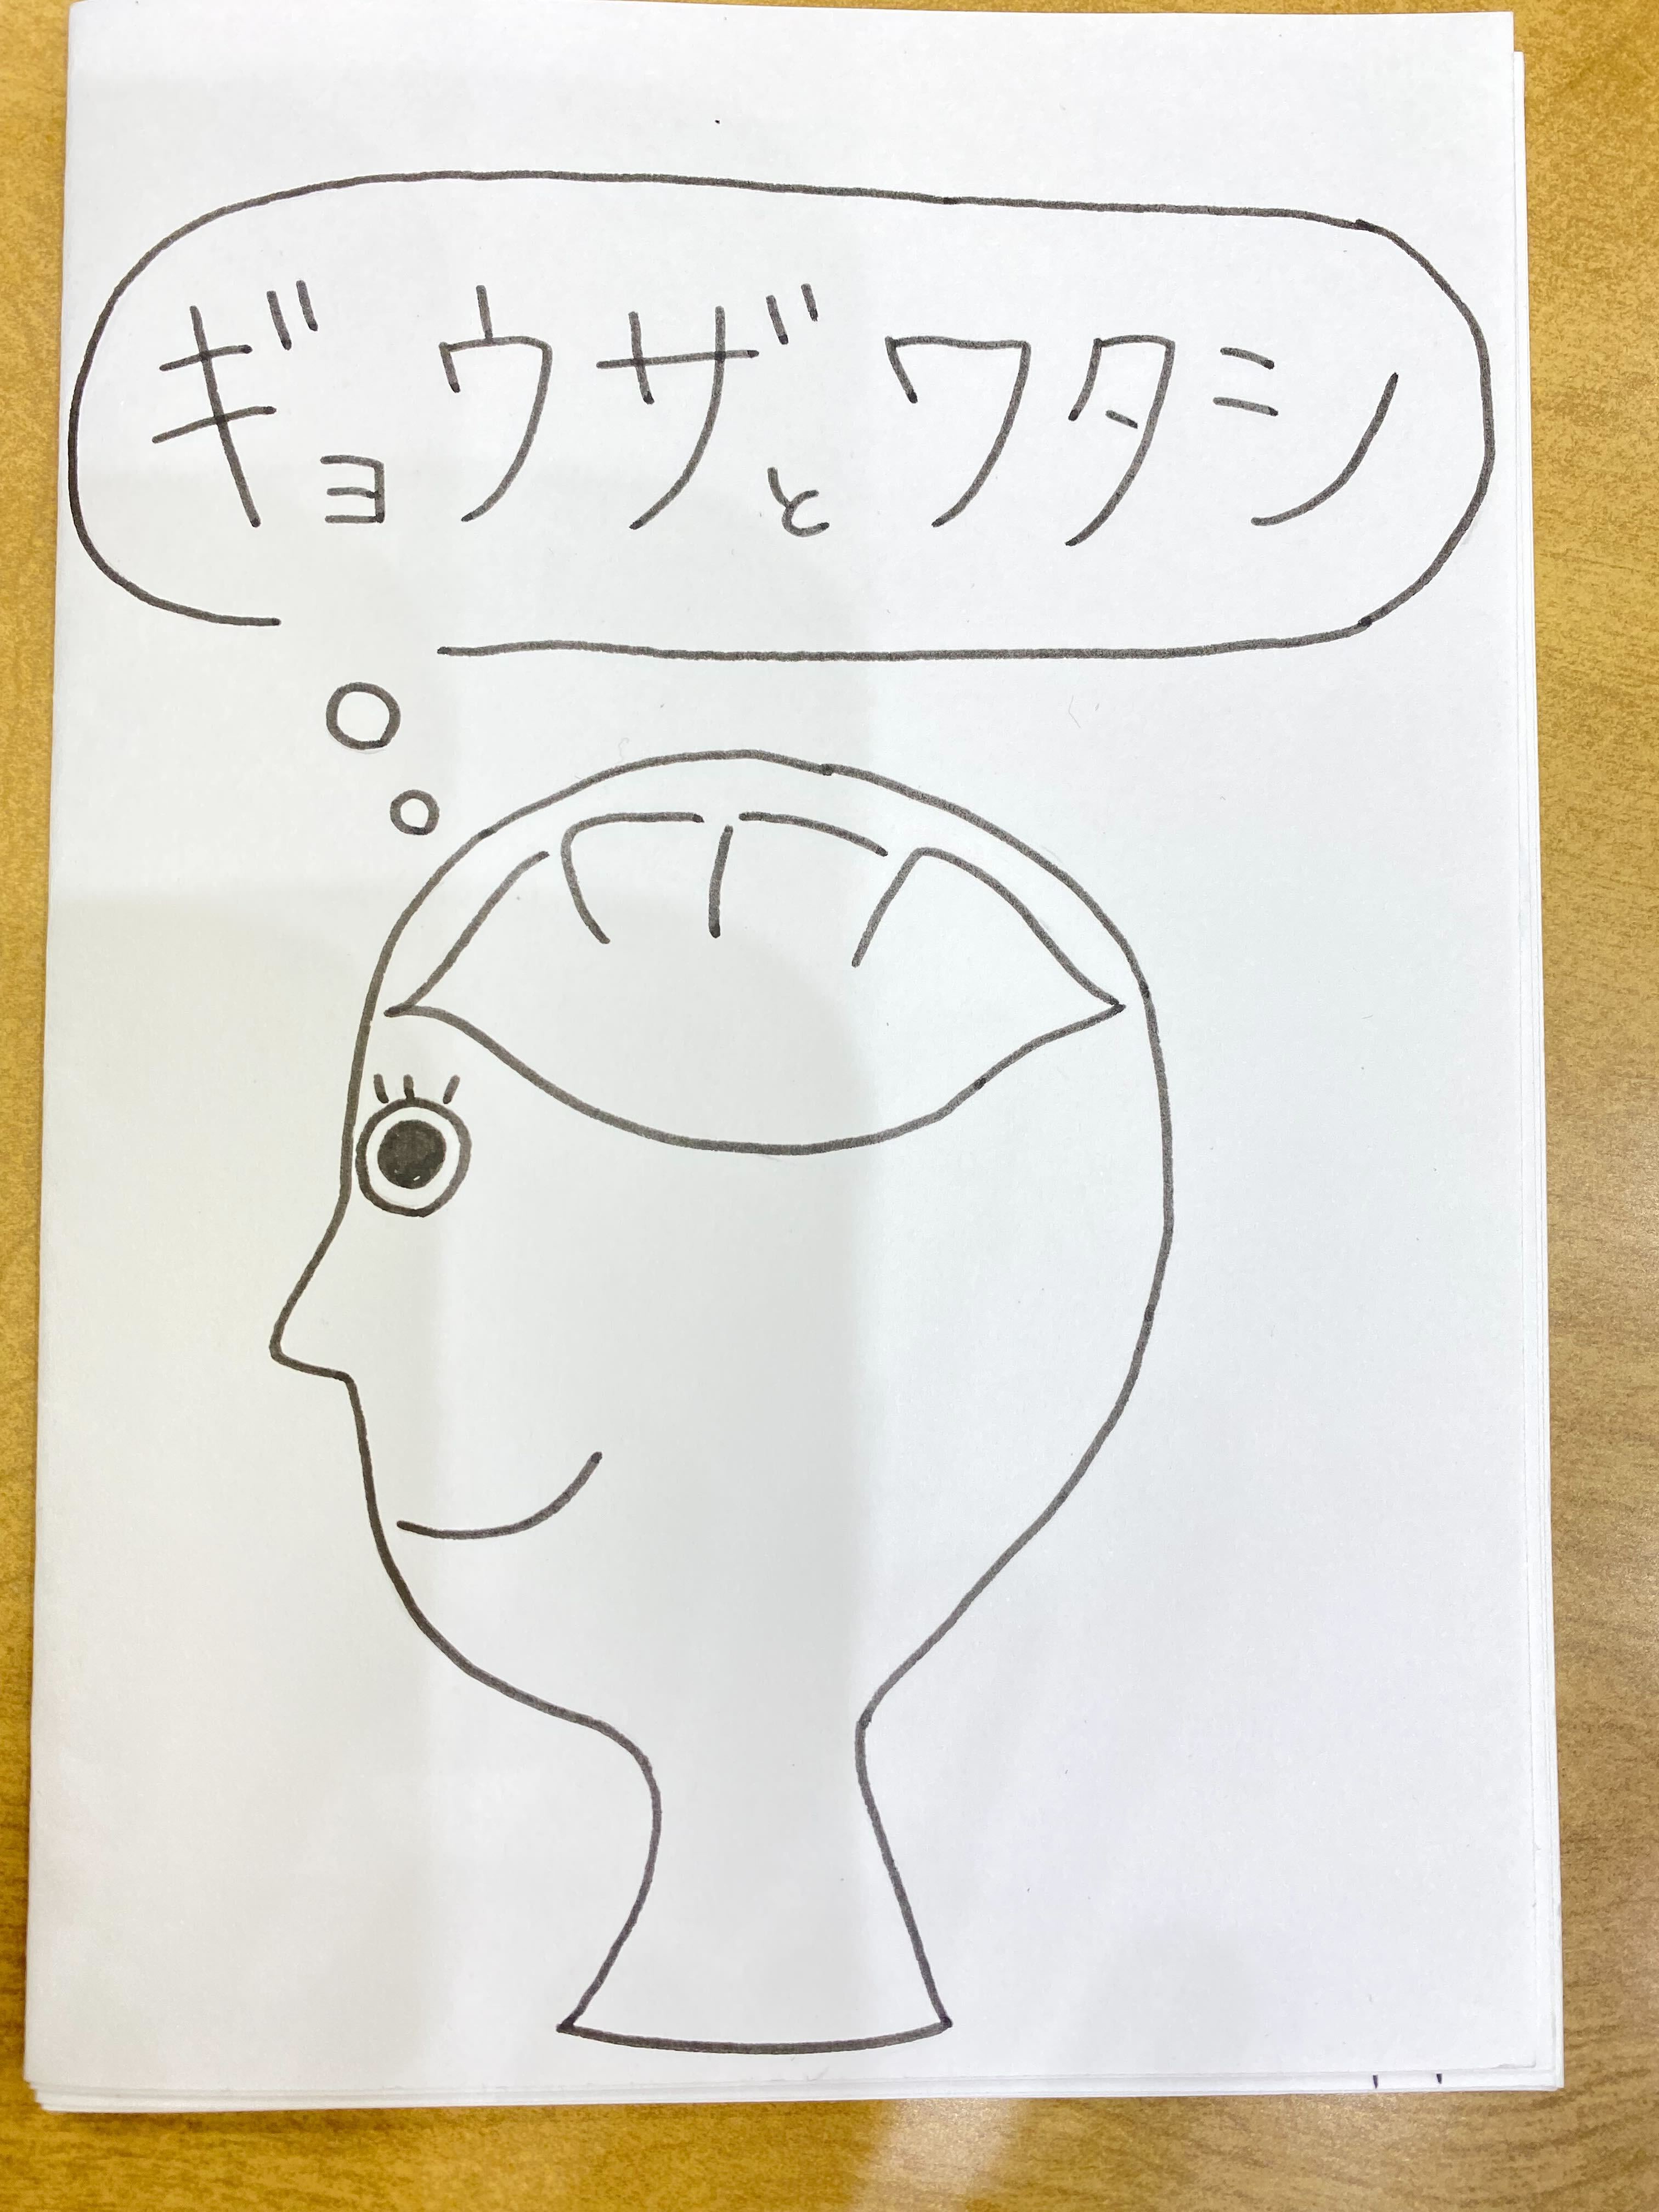 ギョウザとワタシ